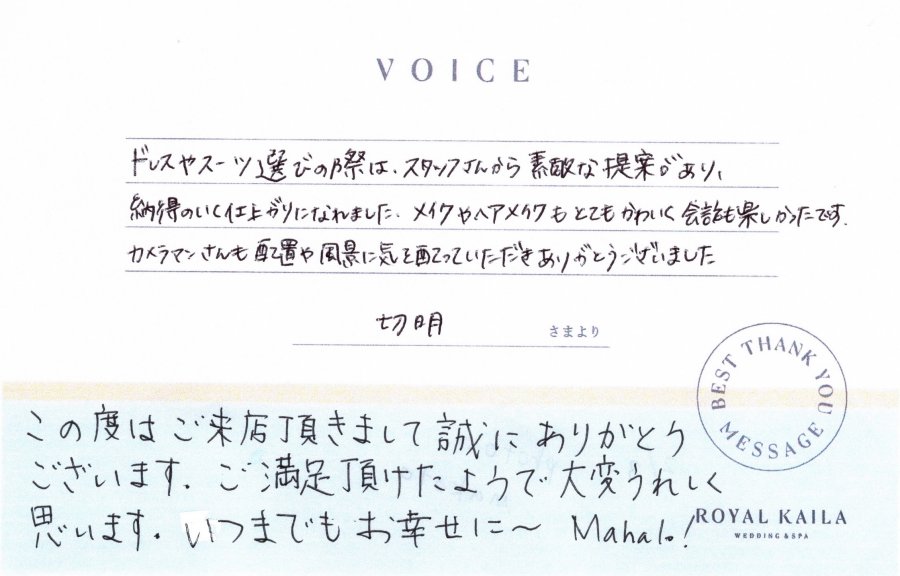 VOICE
ドレスやスーツ選びの際は、スタッフさんから素敵な提案があり、
納得のいく仕上がりになれました。メイクやヘアメイクもとてもかわいく会話も楽しかったです。
カメラマンさんも配置や風景に気を配っていただきありがとうございました
切明 さまより
BEST THANK YOU MESSAGE
この度はご来店頂きまして誠にありがとう
ございます。ご満足頂けたようで大変うれしく
思います。いつまでもお幸せに〜 Mahalo!
ROYAL KAILA
WEDDING & SPA